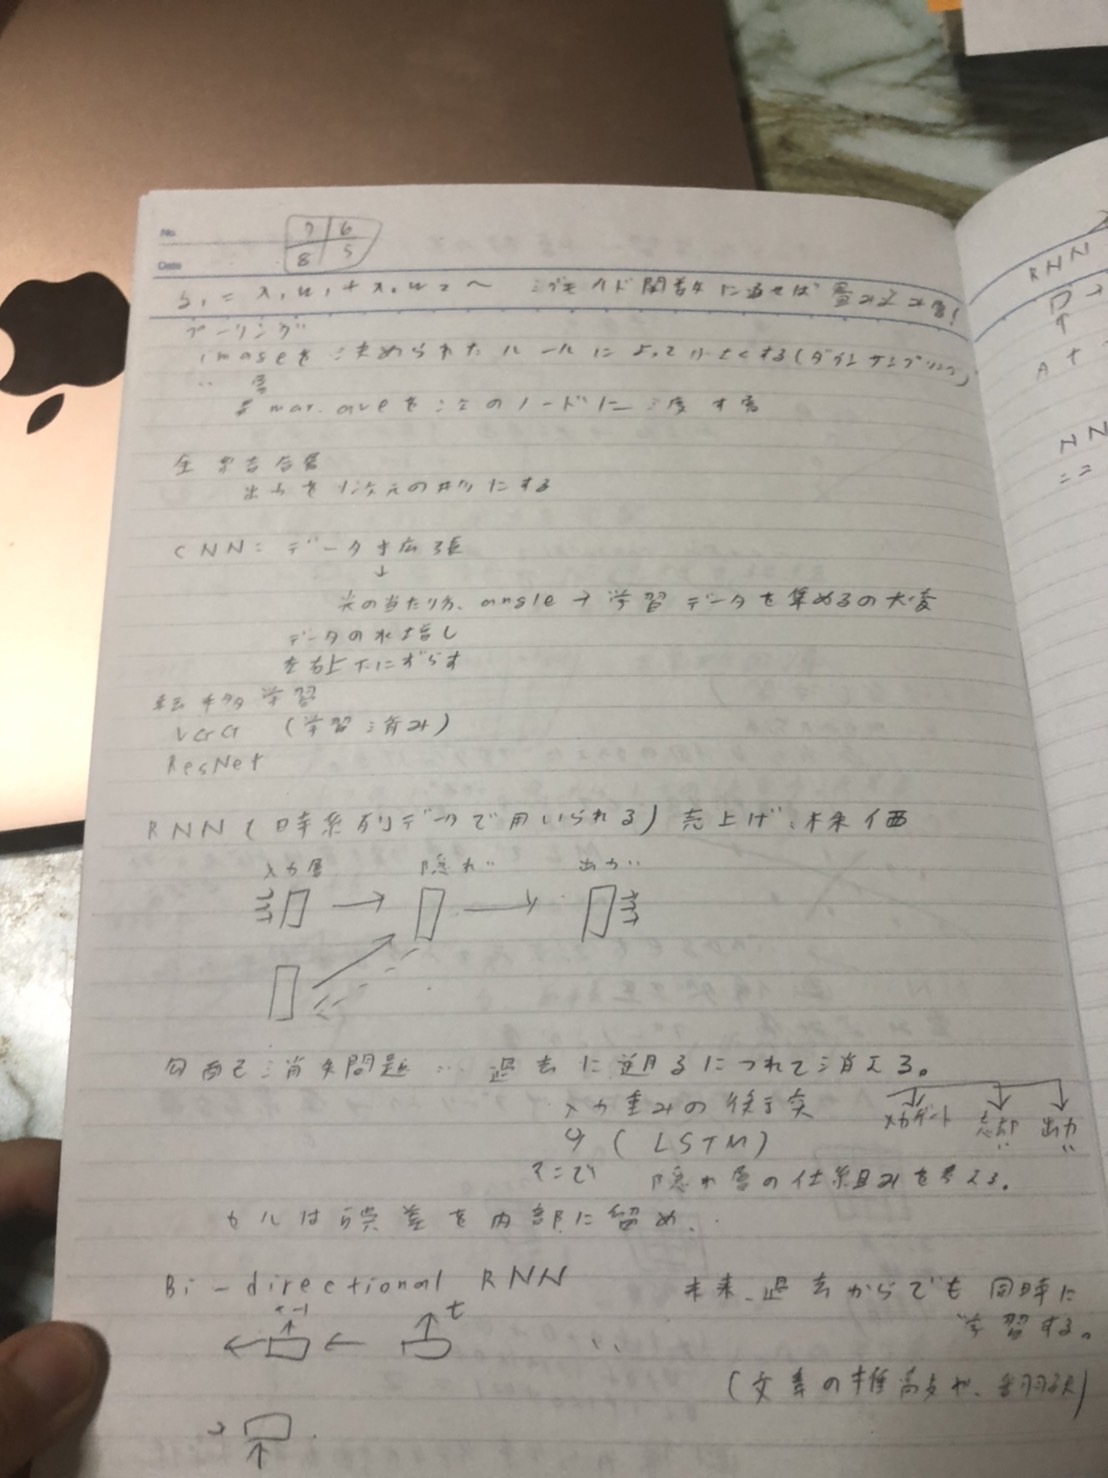 No.
Date
7 6
8 5
y₁ = x₁w₁ + x₂w₂ 〜 シグモイド関数に通せば畳み込み層!
プーリング
imageを決められたルールによって小さくする(ダウンサンプリング)
〃 層
max. aveを次のノードに渡す層
全結合層
出力を1次元の形にする
CNN: データ拡張
↓
光の当たり方、angle → 学習データを集めるの大変
データの水増し
左右上下にずらす
転移学習
VGG (学習済み)
ResNet
RNN (時系列データで用いられる) 売上げ、株価
入力層 隠れ〃 出力〃
勾配消失問題 … 過去に遡るにつれて消える。
入力重みの衝突
(LSTM)
入力ゲート 忘却〃 出力〃
そこで 隠れ層の仕組みを考える。
セルは誤差を内部に留め..
Bi-directional RNN 未来、過去からでも同時に
学習する。
t-1 t
(文章の推敲や、翻訳)
RNN
A +
NN